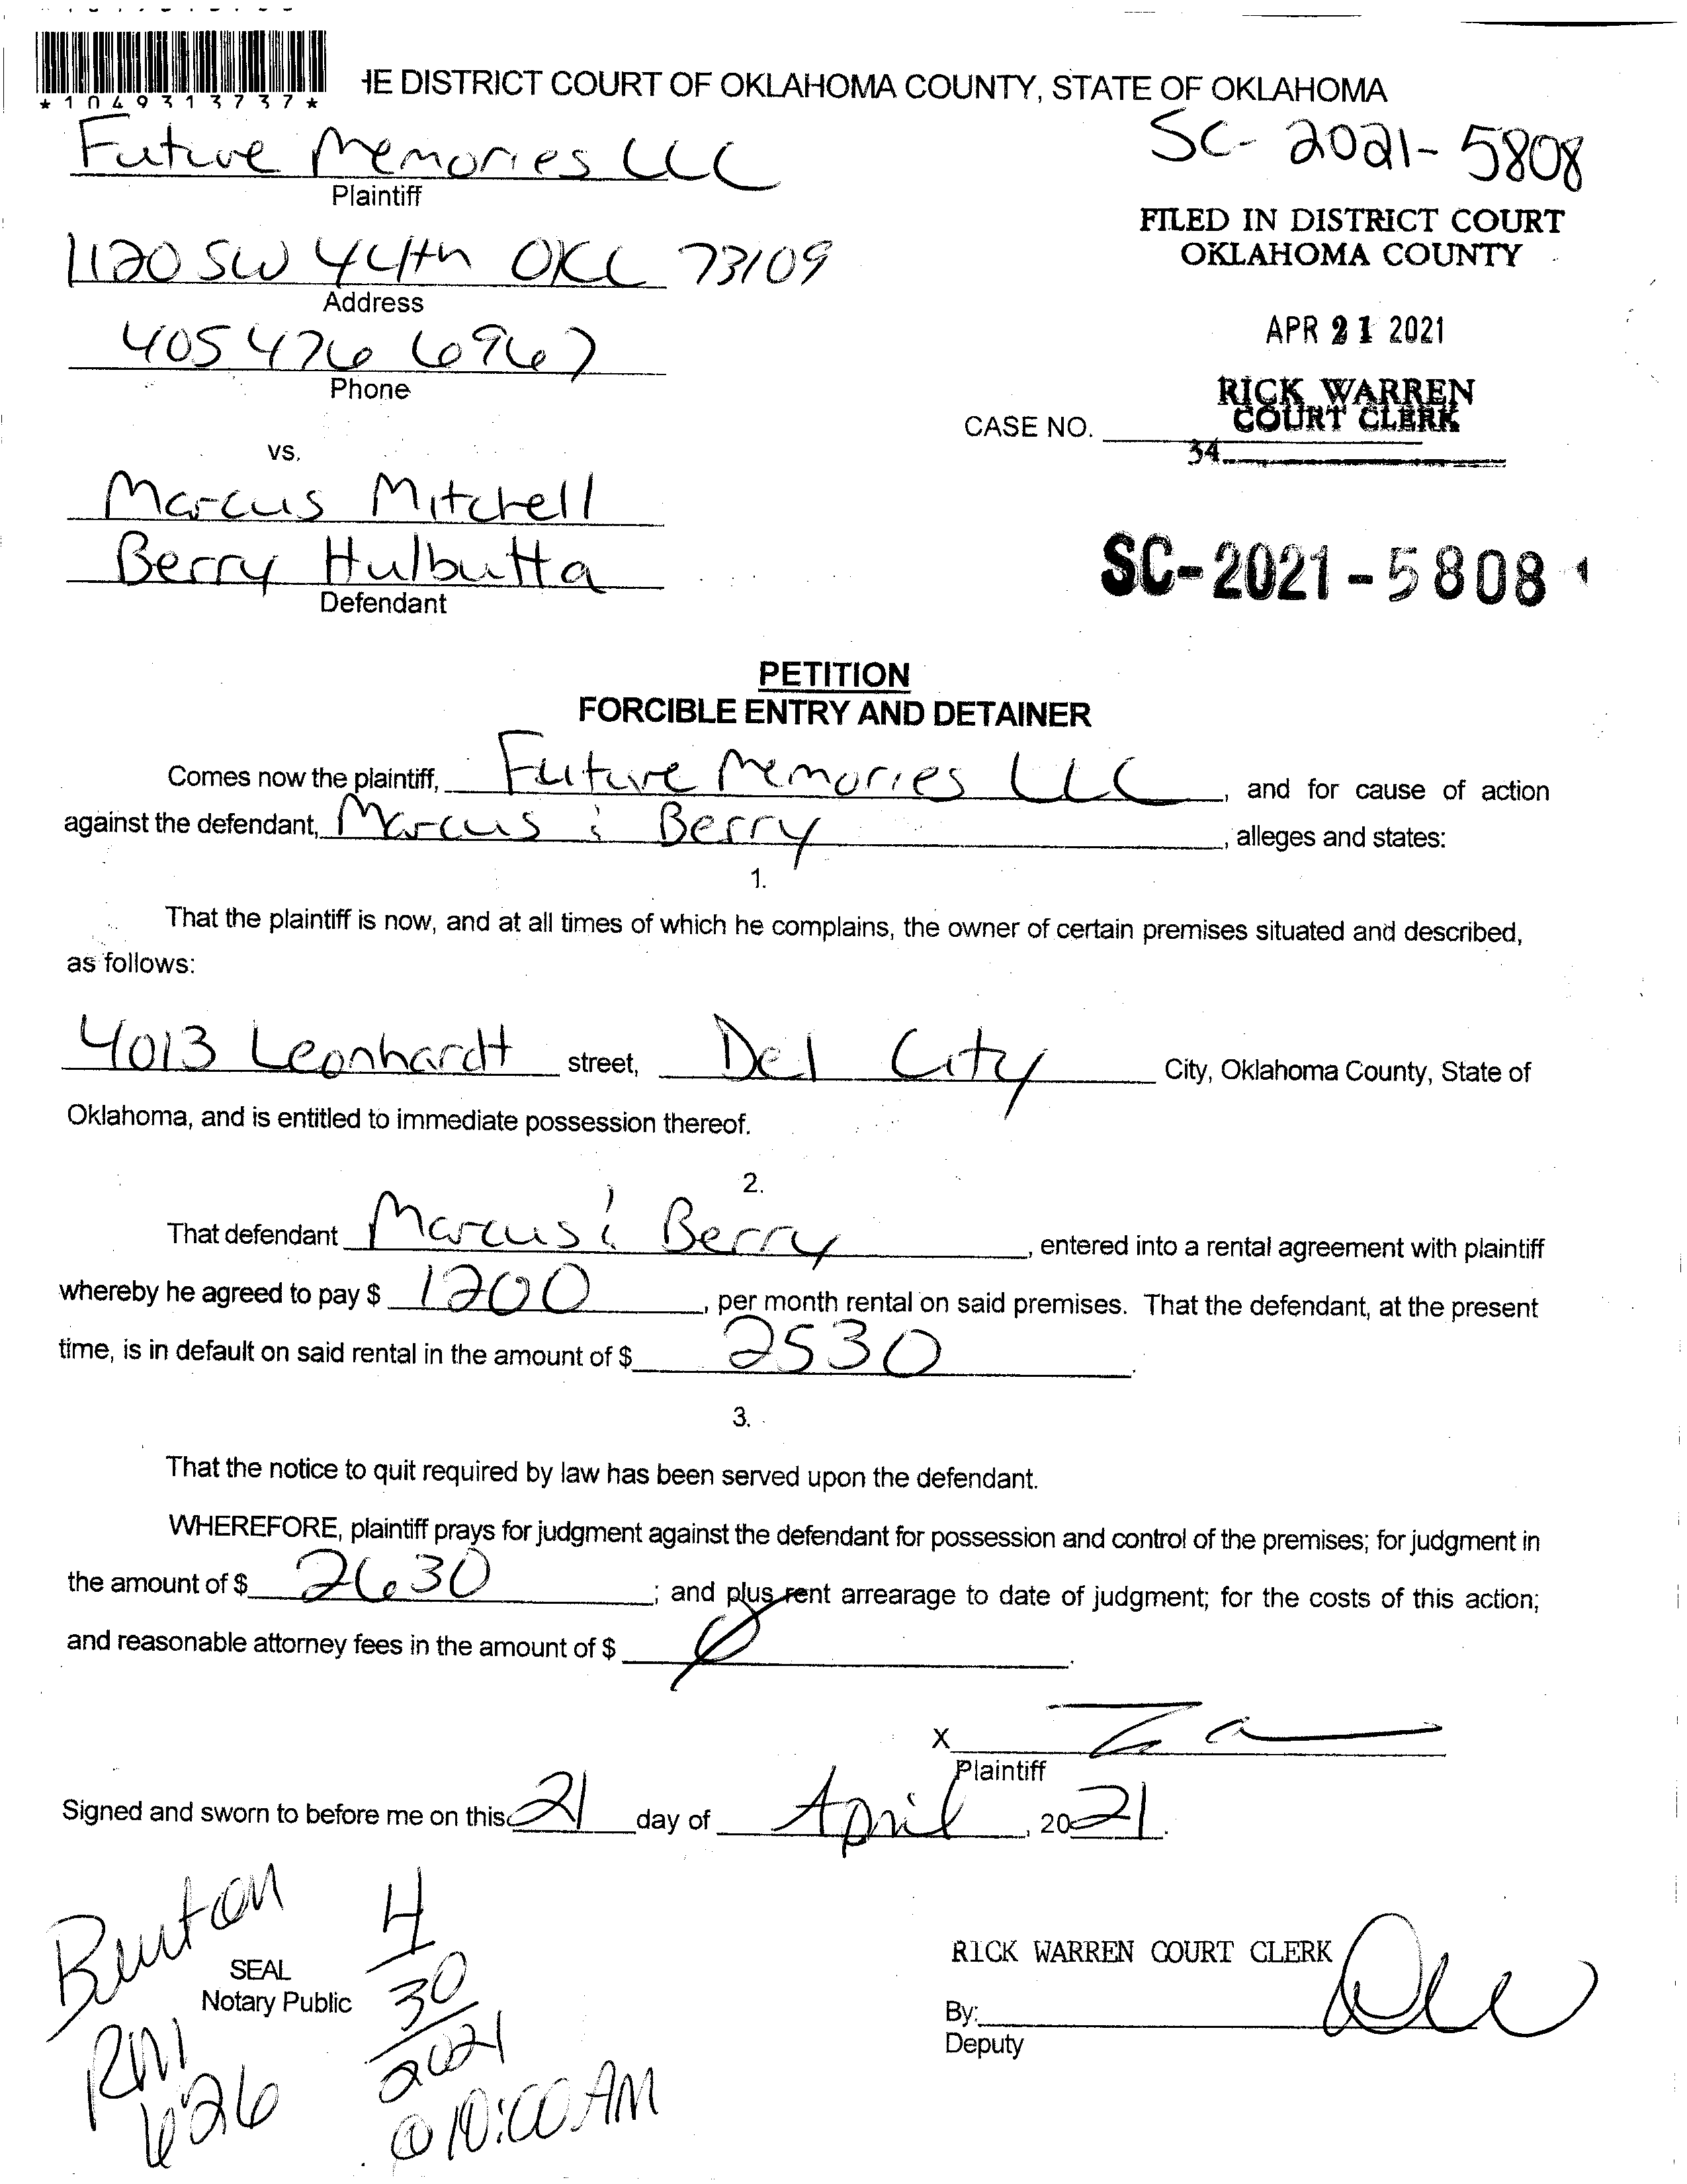 *1049313737*
IE DISTRICT COURT OF OKLAHOMA COUNTY, STATE OF OKLAHOMA
Future Memories LLC
Plaintiff
SC-2021-5808
FILED IN DISTRICT COURT
OKLAHOMA COUNTY
1120 SW 44th OKC 73109
Address
APR 21 2021
405 476 6967
Phone
RICK WARREN
COURT CLERK
CASE NO.
34
vs.
Marcus Mitchell
Berry Hulbutta
Defendant
SC-2021-5808
PETITION
FORCIBLE ENTRY AND DETAINER
Comes now the plaintiff, Future Memories LLC, and for cause of action
against the defendant, Marcus & Berry, alleges and states:
1.
That the plaintiff is now, and at all times of which he complains, the owner of certain premises situated and described,
as follows:
4013 Leonhardt street, Del City City, Oklahoma County, State of
Oklahoma, and is entitled to immediate possession thereof.
2.
That defendant Marcus & Berry, entered into a rental agreement with plaintiff
whereby he agreed to pay $ 1200, per month rental on said premises. That the defendant, at the present
time, is in default on said rental in the amount of $ 2530.
3.
That the notice to quit required by law has been served upon the defendant.
WHEREFORE, plaintiff prays for judgment against the defendant for possession and control of the premises; for judgment in
the amount of $ 2630; and plus rent arrearage to date of judgment; for the costs of this action;
and reasonable attorney fees in the amount of $ Ø.
X
Plaintiff
Signed and sworn to before me on this 21 day of April, 2021.
Burton
4
30
2021
SEAL
Notary Public
RICK WARREN COURT CLERK
By:
Deputy
RM
626
@ 10:00 AM